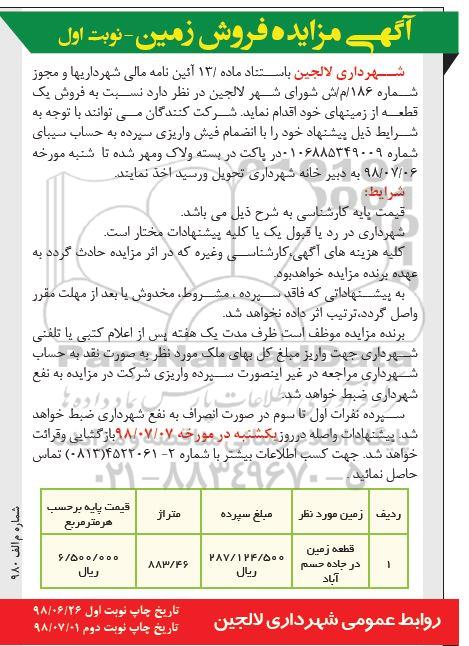 آگهی مزایده فروش زمین - نوبت اول
شهرداری لالجین باستناد ماده /۱۳ آئین نامه مالی شهرداریها و مجوز
شماره ۱۸۶/م/ش شورای شهر لالجین در نظر دارد نسبت به فروش یک
قطعه از زمینهای خود اقدام نماید. شرکت کنندگان می توانند با توجه به
شرایط ذیل پیشنهاد خود را با انضمام فیش واریزی سپرده به حساب سیبای
شماره ۰۱۰۶۸۸۵۳۴۹۰۰۹ در پاکت در بسته ولاک ومهر شده تا شنبه مورخه
۹۸/۰۷/۰۶ به دبیر خانه شهرداری تحویل ورسید اخذ نمایند.
شرایط:
قیمت پایه کارشناسی به شرح ذیل می باشد.
شهرداری در رد یا قبول یک یا کلیه پیشنهادات مختار است.
کلیه هزینه های آگهی،کارشناسی وغیره که در اثر مزایده حادث گردد به
عهده برنده مزایده خواهدبود.
به پیشنهاداتی که فاقد سپرده ، مشروط، مخدوش یا بعد از مهلت مقرر
واصل گردد،ترتیب اثر داده نخواهد شد.
برنده مزایده موظف است ظرف مدت یک هفته پس از اعلام کتبی یا تلفنی
شهرداری جهت واریز مبلغ کل بهای ملک مورد نظر به صورت نقد به حساب
شهرداری مراجعه در غیر اینصورت سپرده واریزی شرکت در مزایده به نفع
شهرداری ضبط خواهد شد.
سپرده نفرات اول تا سوم در صورت انصراف به نفع شهرداری ضبط خواهد
شد. پیشنهادات واصله درروز یکشنبه در مورخه ۹۸/۰۷/۰۷ بازگشایی وقرائت
خواهد شد. جهت کسب اطلاعات بیشتر با شماره ۲- ۴۵۲۲۰۶۱(۰۸۱۳) تماس
حاصل نمائید .
۰۲۱-۸۸۳۴۹۶۷۰-۵
ردیف زمین مورد نظر مبلغ سپرده متراژ قیمت پایه برحسب هرمترمربع
۱ قطعه زمین در جاده حسم آباد ۲۸۷/۱۲۴/۵۰۰ ریال ۸۸۳/۴۶ ۶/۵۰۰/۰۰۰ ریال
شماره م الف ۹۸۰
روابط عمومی شهرداری لالجین
تاریخ چاپ نوبت اول ۹۸/۰۶/۲۶
تاریخ چاپ نوبت دوم ۹۸/۰۷/۰۱